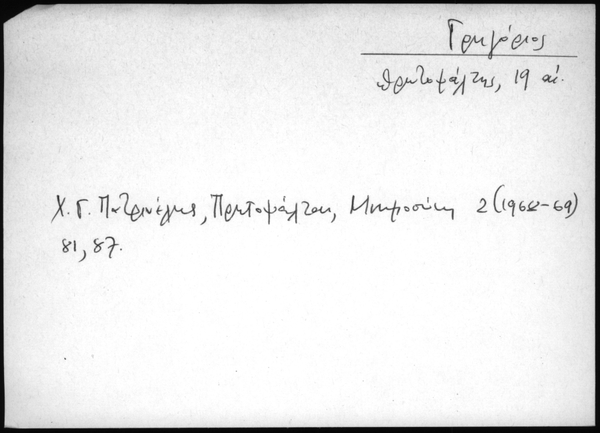 Γρηγόριος
πρωτοψάλτης, 19 αἰ.
Χ. Γ. Πατρινέλης, Πρωτοψάλται, Μνημοσύνη 2 (1968-69)
81, 87.